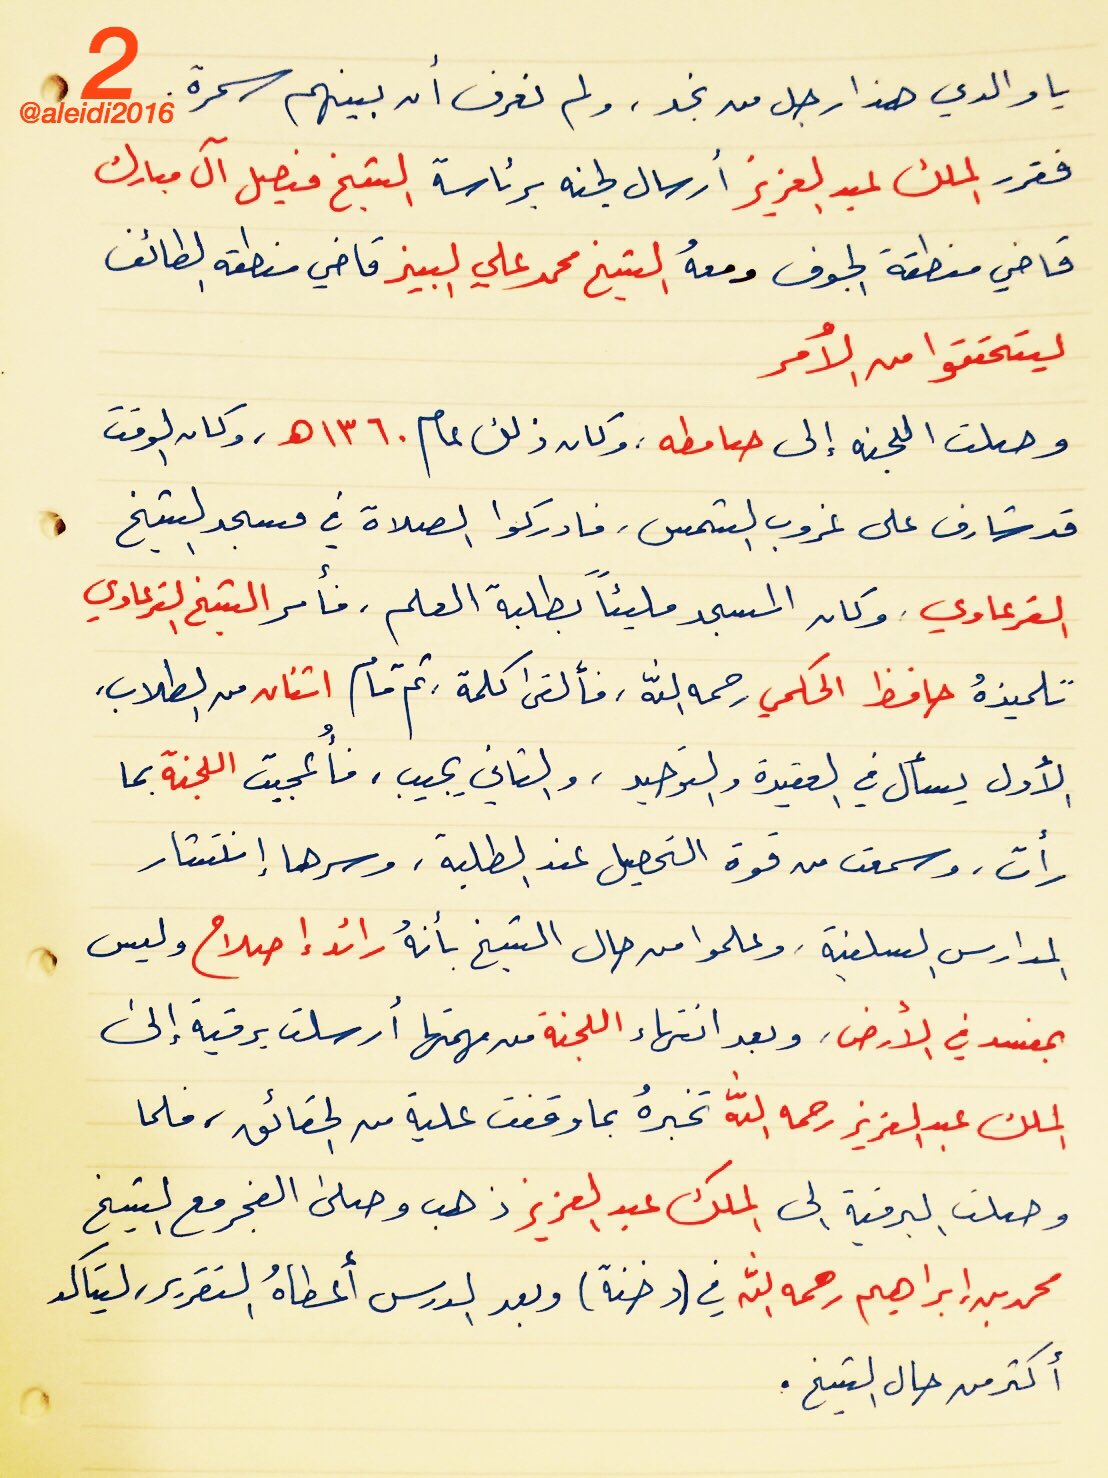 2
@aleidi2016
يا والدي هذا رجل من نجد ، ولم نعرف أن بينهم سحرة .
فقرر الملك عبد العزيز أرسال لجنه برئاسة الشيخ فيصل آل مبارك
قاضي منطقة الجوف ومعهُ الشيخ محمد علي البيز قاضي منطقه الطائف
ليتحققوا من الأمر
وصلت اللجنه إلى صامطه ، وكان ذلك عام ١٣٦٠هـ ، وكان الوقت
قد شارف على غروب الشمس ، فادركوا الصلاة في مسجد الشيخ
القرعاوي ، وكان المسجد مليئاً بطلبة العلم ، فأمر الشيخ القرعاوي
تلميذهُ حافظ الحكمي رحمه الله ، فألقى كلمة ، ثم قام اثنان من الطلاب ،
الأول يسأل في العقيدة والتوحيد ، والثاني يجيب ، فأُعجبت اللجنة بما
رأت ، وسمعت من قوة التحصيل عند الطلبة ، وسرها إنتشار
المدارس السلفية ، وعلموا من حال الشيخ بأنهُ رائد إصلاح وليس
بمفسد في الأرض ، وبعد انتهاء اللجنة من مهمتها أرسلت برقية إلى
الملك عبد العزيز رحمه الله تخبرهُ بما وقفت علية من الحقائق ، فلما
وصلت البرقية الى الملك عبد العزيز ذهب وصلى الفجر مع الشيخ
محمد بن إبراهيم رحمه الله في (دخنة) وبعد الدرس أعطاهُ التقرير ، ليتاكد
أكثر من حال الشيخ .